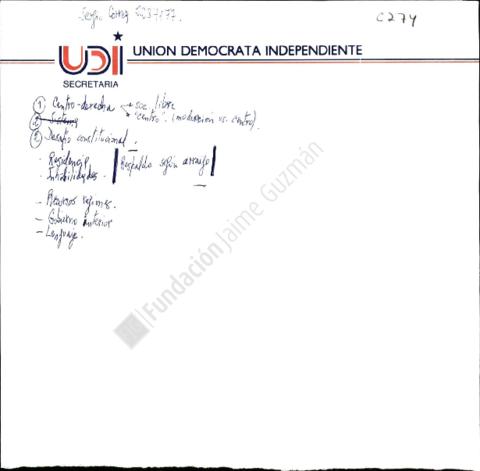 Sergio 5237177.
C274
UDI
UNION DEMOCRATA INDEPENDIENTE
SECRETARIA
① Centro-derecha
soc. libre
"centro". (moderación vs. centro).
② Desafío constitucional.
- Residencia
- Inhabilidades.
Respaldo según arraigo
- regiones.
- Gobierno interior
- Lenguaje.
Fundación Jaime Guzmán